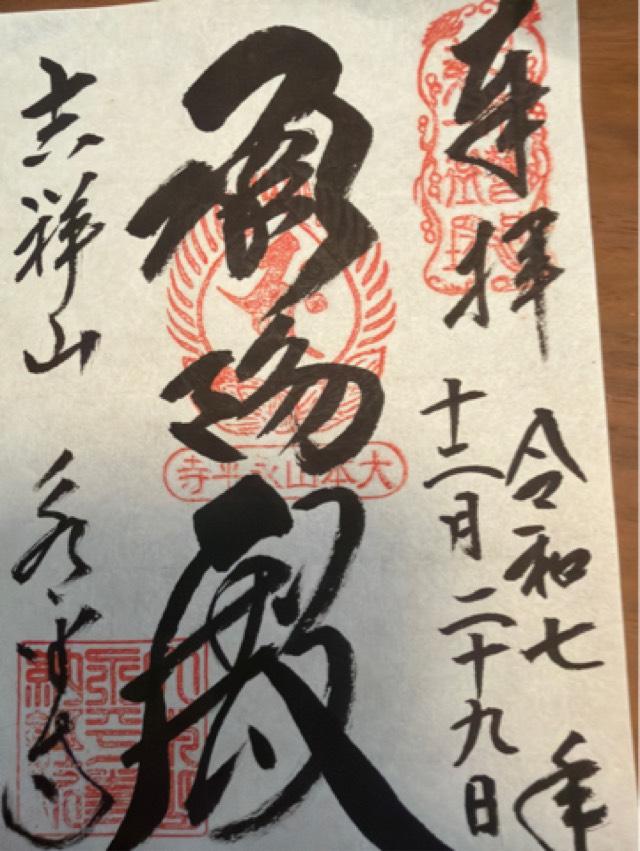 奉拝
令和七年
十二月二十九日
承陽殿
大本山永平寺
吉祥山 永平寺